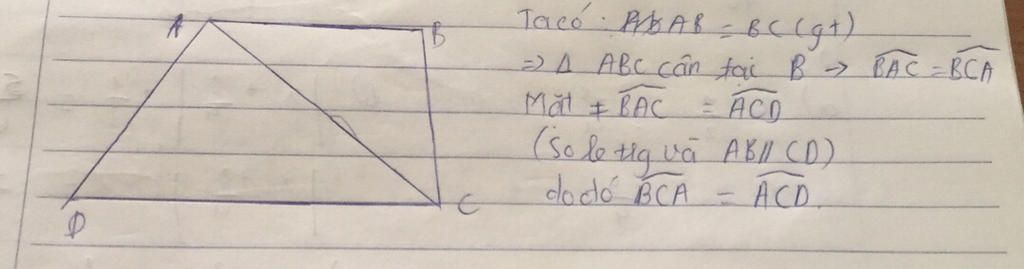 A
B
C
D
Ta có: AB = BC (gt)
=> Δ ABC cân tại B → BAC = BCA
Mặt ≠ BAC = ACD
(So le trg và AB // CD)
do đó BCA = ACD.